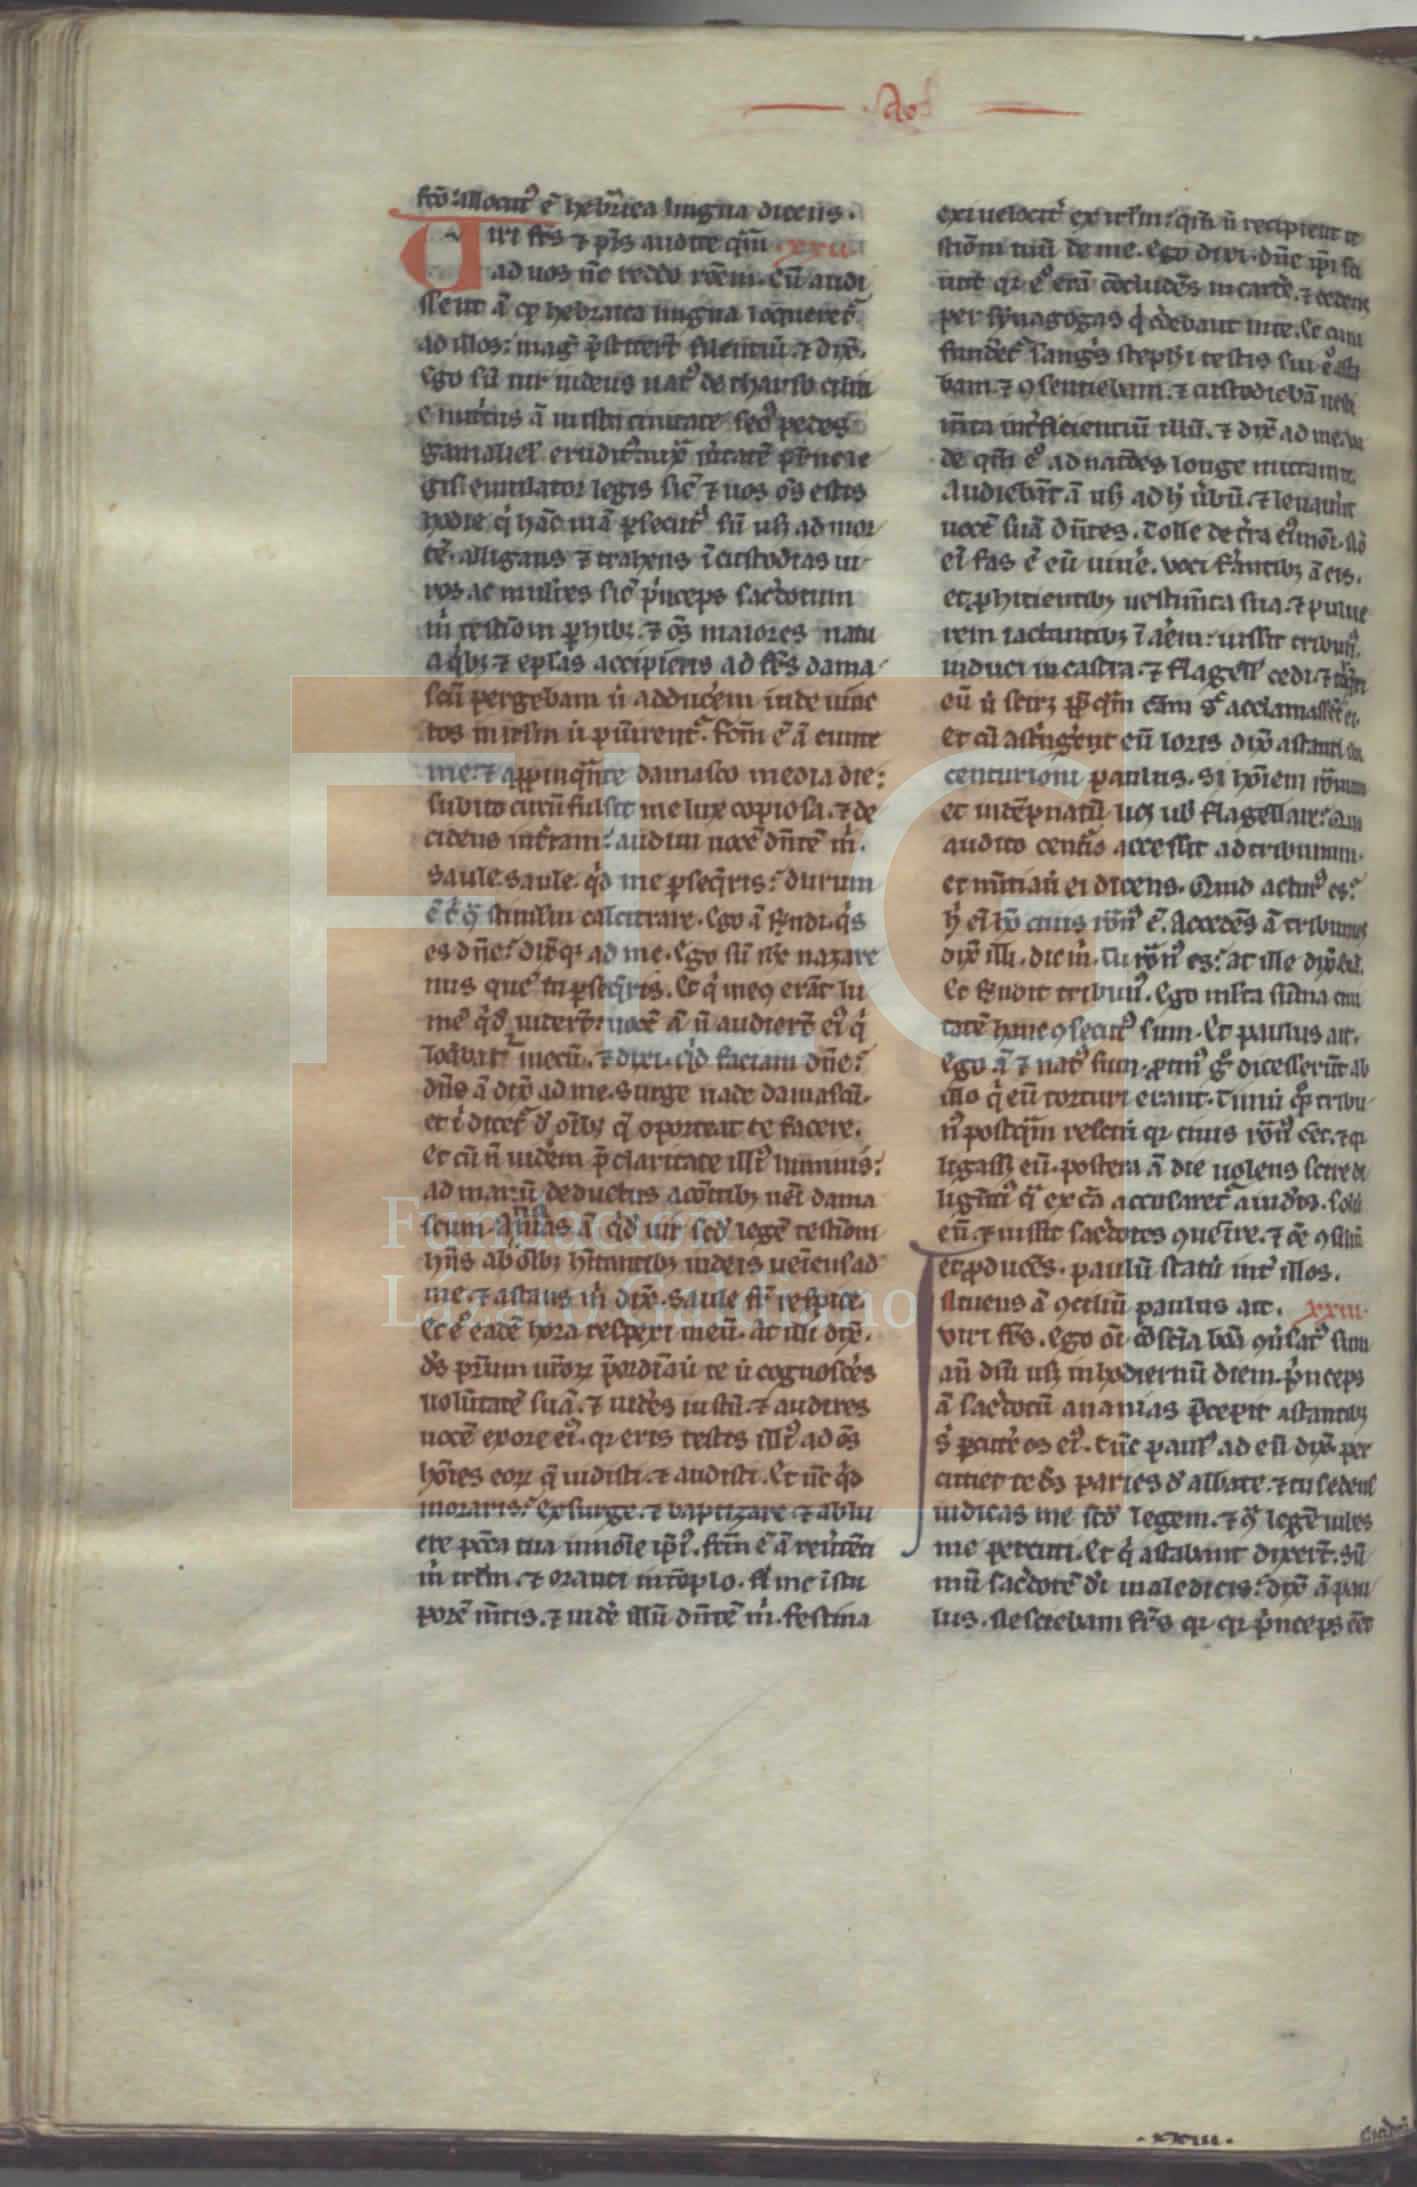 Ac̄
fcō: allocut᷒ ē hebr̄ica lingua dicens.
Uiri fr̄s ⁊ pr̄s audite q̄m xxii
ad uos nc̄ reddo rōem. Cū audi
ssent ā qꝫ hebraica lingua loqueret᷑
ad illos: mag̾ p̄stiterūt silentiū. ⁊ dix̄.
Ego sū uir iudeus nat᷒ de tharso cilicie
nutritus ā in ista ciuitate sec᷒ pedes
gamaliel erudit᷒ iux̄ uitatē pat̾ne le
gis. emulator legis sic̄ ⁊ uos om̄s estis
hodie. q̇ hāc uiā ꝑsecut᷒ sū usꝫ ad mor
tē. alligans ⁊ trahens ī custodias ui
ros ac mulieres sic̄ ṗnceps sac̾dotum
ṁ testiōm ꝑhibꝫ. ⁊ om̄s maiores natu
a q̇bꝫ ⁊ epl̄as accipiens ad fr̄s dama
scū pergebam ut̾ adducerem inde uinc
tos in irl̄m ut̾ puirent᷑. Fcm̄ ē ā eunte
me. ⁊ app̄inquāte damasco media die:
subito circū fulsit me lux copiosa. ⁊ de
cidens in terram: audiui uocē dn̄tē ṁ.
Saule. saule. q̇d me ꝑseq̄ris? durum
ē t̾ 9ͣ stimulū calcitrare. Ego ā r̄ndi. q̇s
es dn̄e? dix̄qꝫ ad me. Ego sū ih̄c nazare
nus quē tu ꝑseq̄ris. Et q̇ mecū erāt lu
mē q̇dē uidert̄: uocē ā n̄ audiert̄ ei᷒ q̇
loq̄bat᷑ mecū. ⁊ dixi. q̇d faciam dn̄e?
dn̄s ā dix̄ ad me. Surge uade damascū.
et i̇ dicet᷑ t̾ d̾ oīibꝫ q̄ oporteat te facere.
Et cū n̄ uiderem p̄ claritate illi᷒ luminis:
ad manū deductus a comitibꝫ ueni dama
scum. Ananias ā q̇dā uir scd̄m legē testiōm
hn̄s ab oībꝫ hītantibꝫ iudeis ueniens ad
me. ⁊ astans ṁ dix̄. Saule fr̄ respice.
Et ē eadē hora respexi in eū. At ille dix̄.
ds̄ patrum nr̄orꝝ p̄ordīauit te ut̾ cognosceres
uolūtatē suā. ⁊ uideres iustū. ⁊ audires
uocē ex ore ei᷒. qꝛ eris testis illi᷒ ad om̄s
homines eorꝝ q̄ uidisti. ⁊ audisti. Et nc̄ q̇d
moraris? Exsurge. ⁊ baptizare ⁊ ablu
ere pcc̄a tua inuocato nomīe ipi᷒. Fcm̄ ē ā reu̾tēti
ṁ irl̄m. ⁊ oranti in templo. fi̾ me ī stu
porē mētis. ⁊ uide̾ illū dn̄tē ṁ. festina
exi uelocit̾ ex irl̄m: qm̄ n̄ recipient te
stiōm tuū de me. Ego dixi. dn̄e ip̄i sci
unt qꝛ ē eram concludēs in carcerē. ⁊ cedens
per synagogas q̇ credebant in te. Et cum
funderet᷑ sangͥs steph̄i testis tui ē asta
bam. ⁊ 9sentiebam. ⁊ custodiebā uesti
mēta int̾ficientiū illū. ⁊ dix̄ ad me. va
de qm̄ ē ad natiōes longe mittam te.
Audiebāt ā usꝫ ad h̾ u̾bū. ⁊ leuauert̄
uocē suā dn̄tes. Tolle de terra ei᷒ modi. nō
ei̾ fas ē eū uiue̾. Vocifērantibꝫ ā eis.
et ꝓhitientibꝫ uestimēta sua. ⁊ pulue
rem iactantibꝫ ī aerē: iussit tribun᷒
induci in castra. ⁊ flagell̄ cedi. ⁊ torq̄ri
eū ut̾ sciret ꝓpt̾ quam cām sic acclamarēt ei.
Et cū astrinxissent eū loris dix̄ astanti sibi
centurioni paulus. Si homīem romanum
et indēpnatū licet uob̄ flagellare? Quo
audito centurio accessit ad tribunum.
et nūtiauit ei dicens. Quid actur᷒ es?
h̾ ei̾ homo ciuis romān᷒ ē. Accedēs ā tribunus
dix̄ illi. dic ṁ. Tu romān᷒ es? at ille dix̄. etiā.
Et r̄ndit tribun᷒. Ego multa sūma ciui
tatē hanc 9secut᷒ sum. Et paulus ait.
Ego ā ⁊ nat᷒ sum. ꝓtin᷒ g̊ discesserūt ab
illo q̇ eū torturi erant. Timuit qꝫ tribu
n᷒ postq̄m resciuit qꝛ ciuis romān᷒ eēt. ⁊ qꝛ
ligassꝫ eū. postera ā die uolens scire di
ligēti᷒ q̄ ex cā accusaret᷑ a iudeis. solu
eū. ⁊ iussit sacerdotes 9uenire. ⁊ om̄e 9siliū
et ꝓducēs. paulū statuit int̾ illos.
Intuens ā 9ciliū paulus ait. xxiii
viri fr̄s. Ego oī 9scīa bona 9ūsat᷒ sum
aн̄ dm̄ usꝫ in hodiernū diem. ṗnceps
ā sacerdotū ananias p̄cepit astantibꝫ
s̾ percute̾ os ei᷒. Tūc paul᷒ ad eū dix̄. per
cutiet te ds̄ paries dealbate. ⁊ tu sedens
iudicas me scd̄m legem. ⁊ 9ͣ legē iubes
me percuti. Et q̇ astabant dixert̄. Sū
mū sacerdotē di̾ maledicis? dix̄ ā pau
lus. Nesciebam fr̄s qꝛ qꝛ ṗnceps eēt
.xxiii.